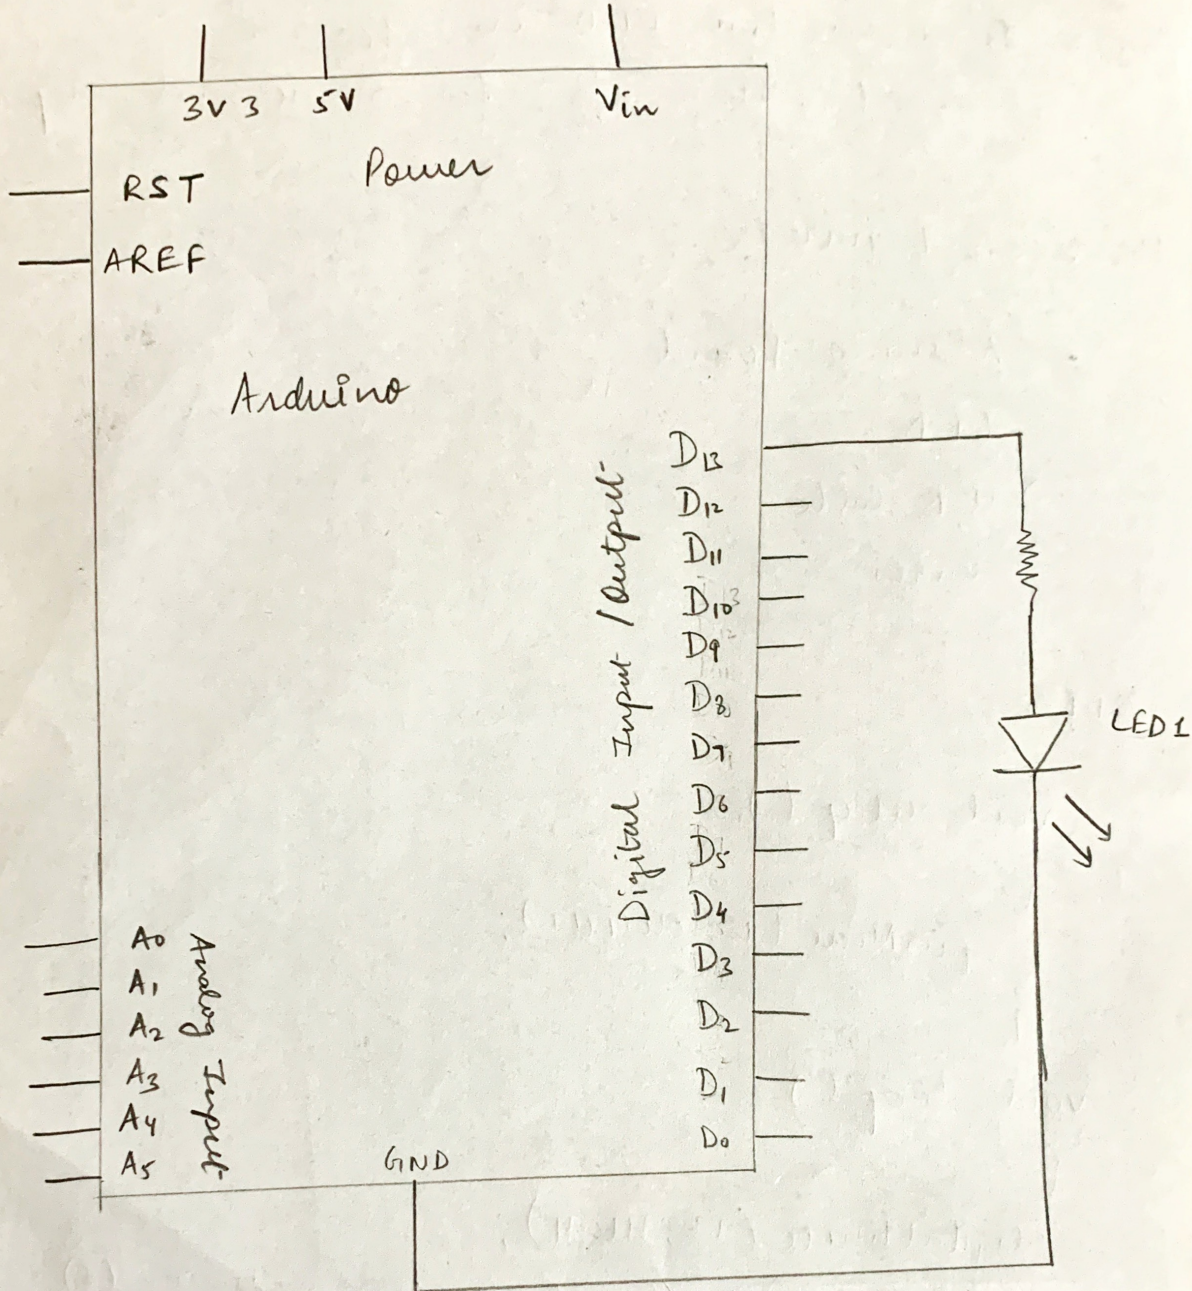 3V3 5V Vin
Power
RST
AREF
Arduino
Digital Input/Output
D13
D12
D11
D10
D9
D8
D7
D6
D5
D4
D3
D2
D1
D0
LED1
Analog Input
A0
A1
A2
A3
A4
A5
GND